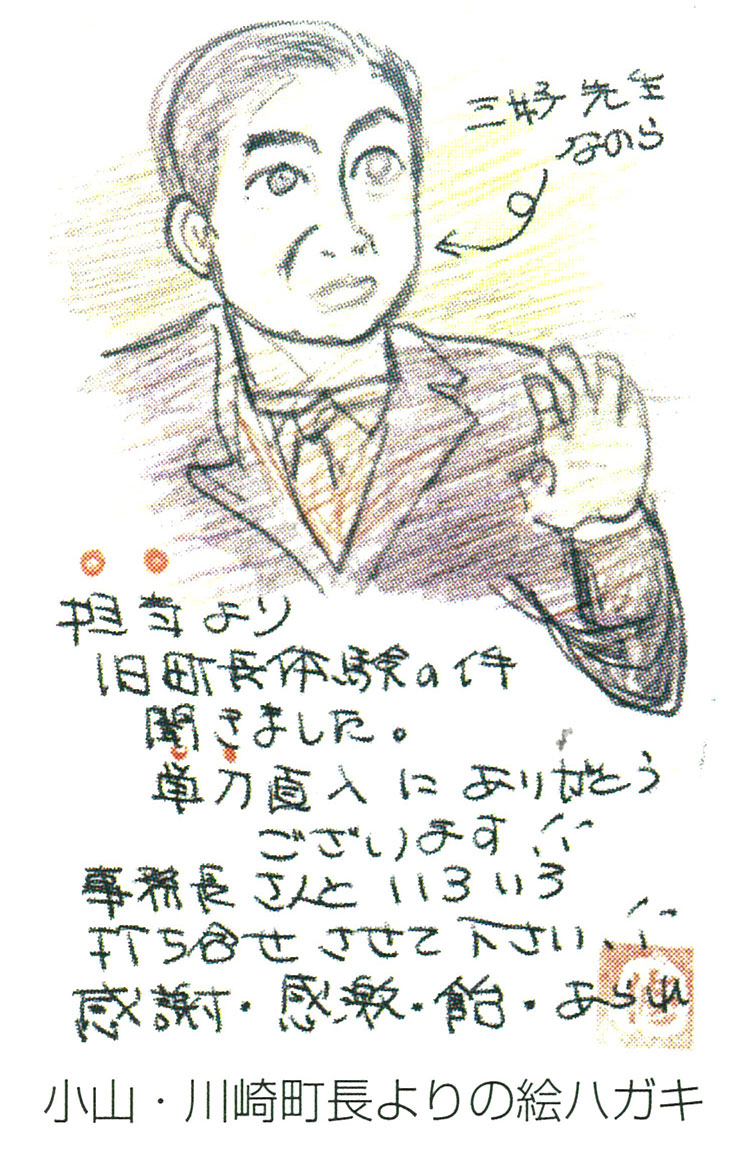 三好先生
なのら
担当より
1日町長体験の件
聞きました。
単刀直入にありがとう
ございます!!
事務長さんといろいろ
打ち合せさせて下さい!!
感謝・感激・飴・あられ
小山・川崎町長よりの絵ハガキ